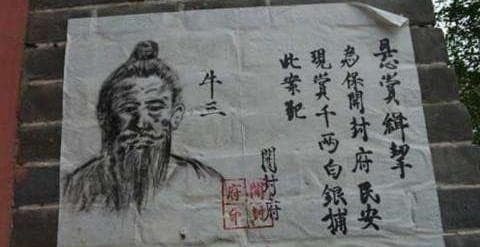 悬賞緝拏
為保開封府民安
現賞千两白銀捕
此案犯
開封府
開封府印
牛三